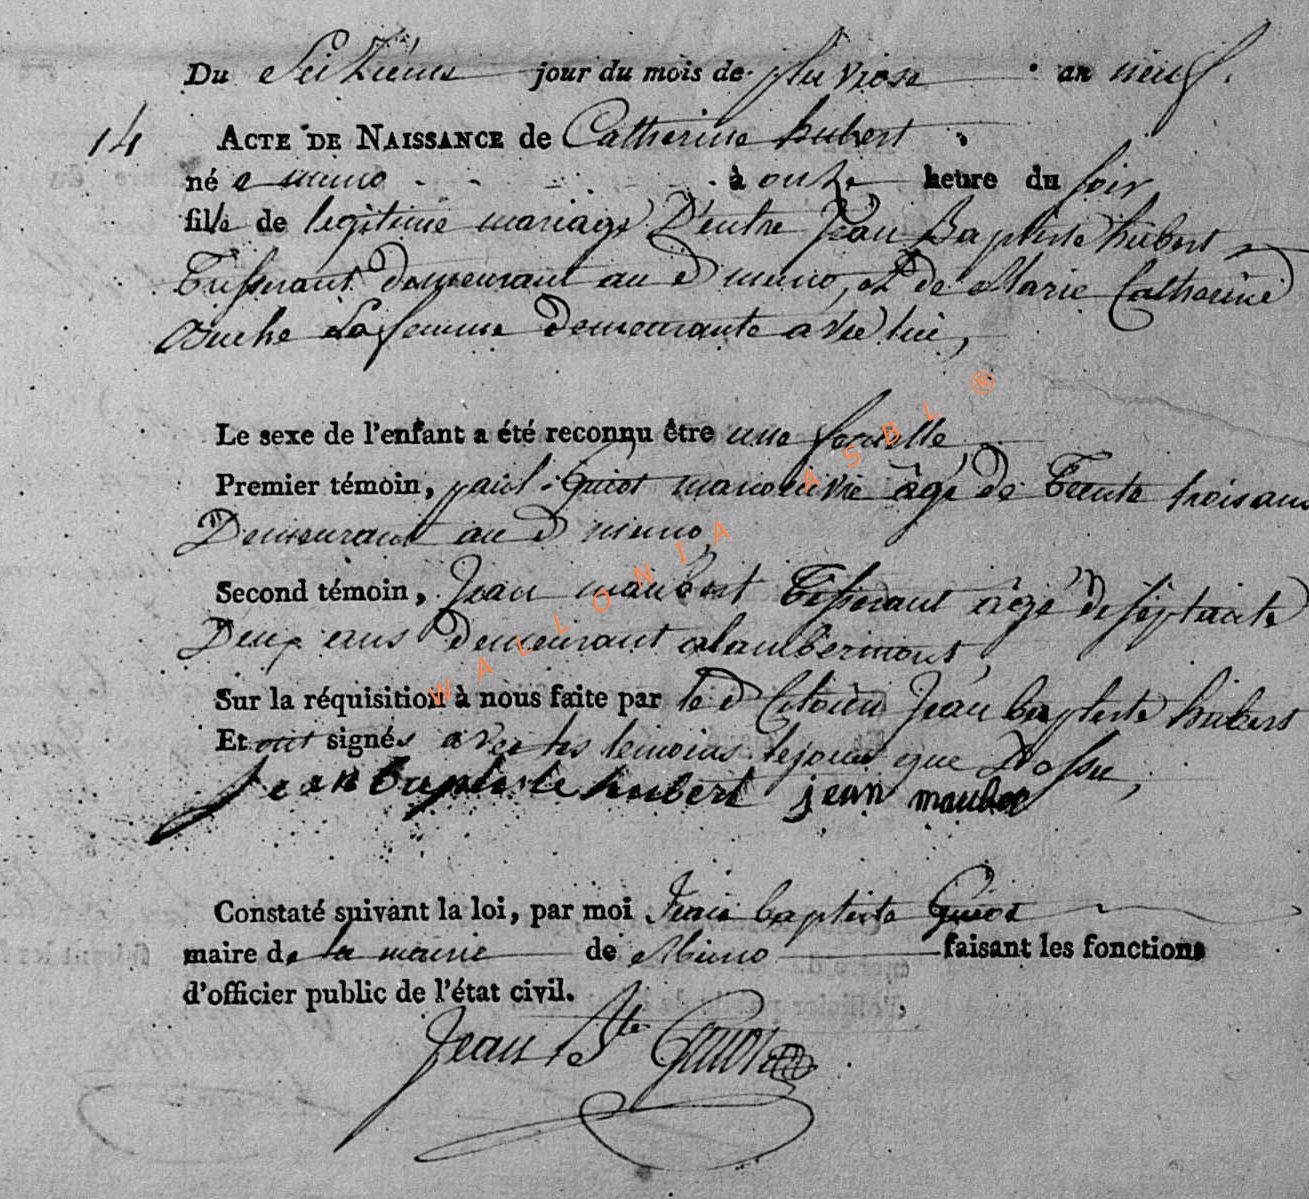 Du Seizieme jour du mois de pluviose an neuf.
14 ACTE DE NAISSANCE de Catherine hubert
né e a muno à onze heure du soir
fille de legitime mariage D'entre Jean Baptiste hubert
Tisserant demeurant au d muno, et de Marie Catherine
Buche Sa femme demeurante avec lui,
Le sexe de l'enfant a été reconnu être une femelle,
Premier témoin, paul Guiot manoeuvre âgé de Trente trois ans
Demeurant au d muno,
Second témoin, Jean maubert Tisserant âgé de septante
Deux ans demeurant a lambermont,
Sur la réquisition à nous faite par le d Citoien Jean baptiste hubert
Et ont signés avec les temoins le jour que Dessu,
jean baptiste hubert jean maube
Constaté suivant la loi, par moi Jean baptiste Guiot
maire de la mairie de Muno faisant les fonctions
d'officier public de l'état civil.
Jean Bte Guiot
WALLONIA ASBL ®